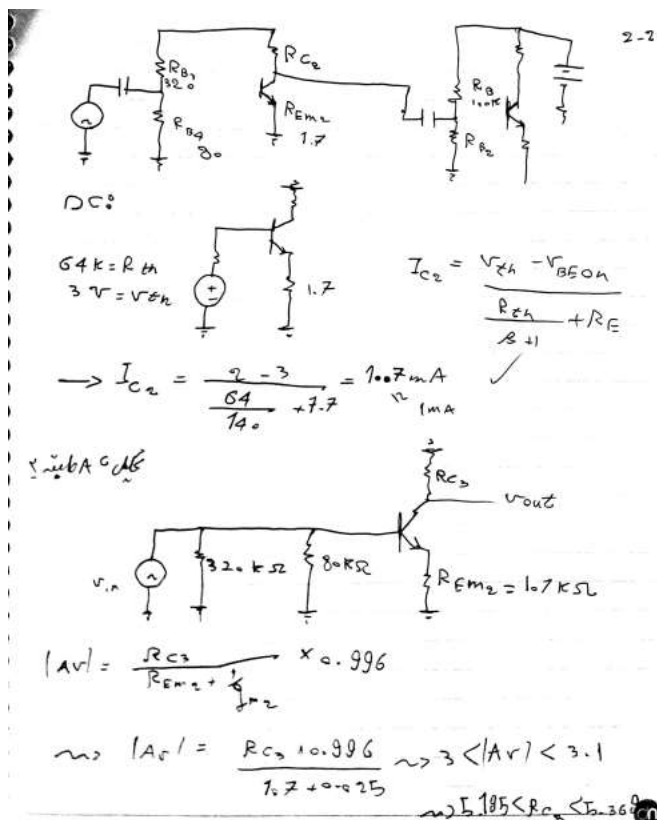 2-2
R_C2
R_B3
320
R_B4
80
R_Em2
1.7
R_B
100K
R_B2
DC:
64K = R_th
3 V = V_th
1.7
I_C2 = (V_th - V_BEon) / (R_th / (β+1) + R_E)
→ I_C2 = / (64 / 140 + 1.7) = 1.07 mA ✓
≈ 1mA
R_C3
v_out
v_in
320 kΩ
80 KΩ
R_Em2 = 1.7 KΩ
|Av| = R_C3 / (R_Em2 + 1/g_m2) × 0.996
~> |Av| = R_C3 × 0.996 / (1.7 + 0.025) ~> 3 < |Av| < 3.1